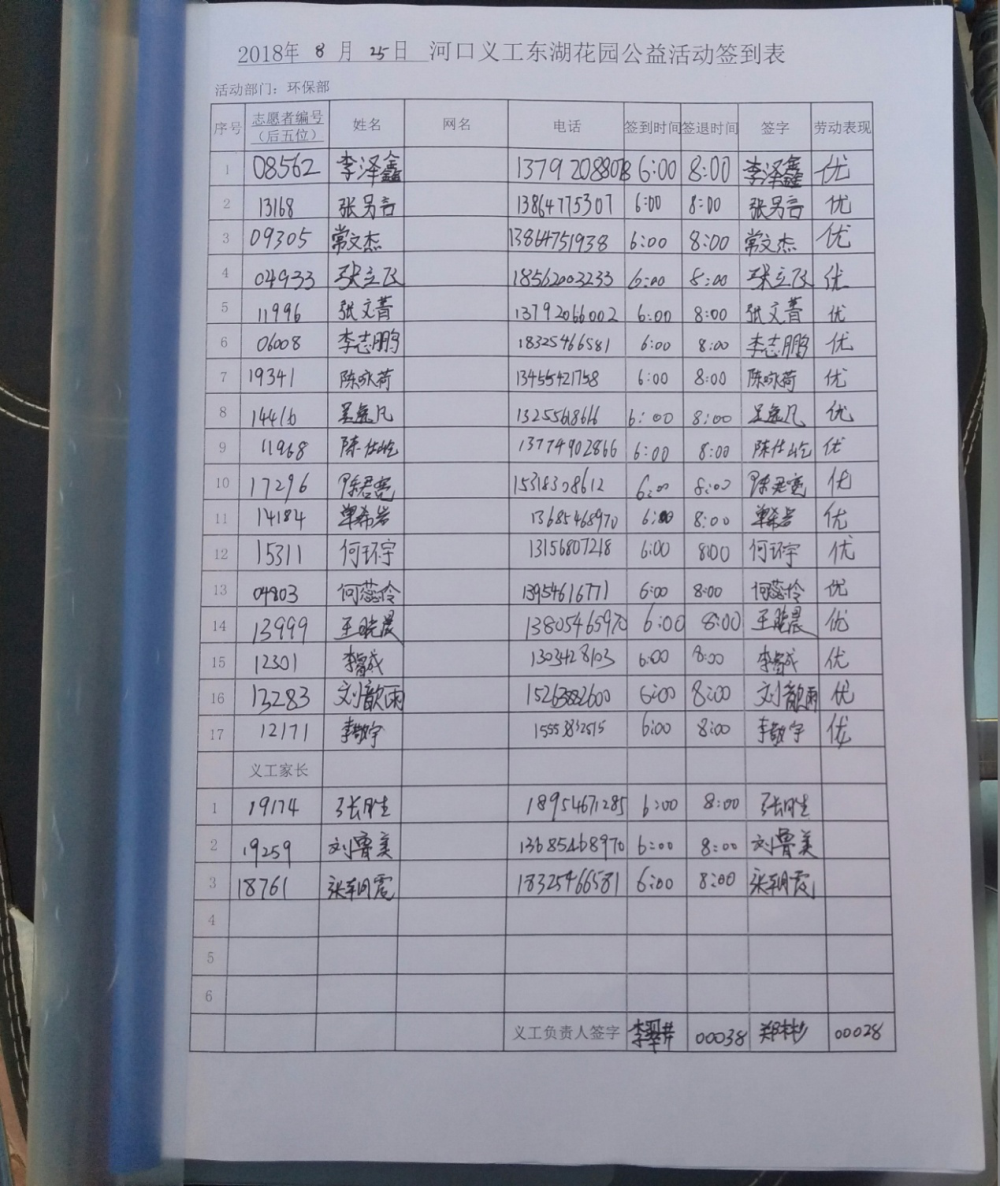 2018年 8 月 25日 河口义工东湖花园公益活动签到表
活动部门：环保部
序号 志愿者编号（后五位） 姓名 网名 电话 签到时间 签退时间 签字 劳动表现
1 08562 李泽鑫 13792088078 6:00 8:00 李泽鑫 优
2 13168 张另言 13864775307 6:00 8:00 张另言 优
3 09305 常文杰 13864751938 6:00 8:00 常文杰 优
4 04933 张立飞 18562003233 6:00 8:00 张立飞 优
5 11996 张文菁 13792066002 6:00 8:00 张文菁 优
6 06008 李志鹏 18325466581 6:00 8:00 李志鹏 优
7 19341 陈咏荷 13455421758 6:00 8:00 陈咏荷 优
8 14416 13255618616 6:00 8:00 优
9 11968 陈仕屹 13774902866 6:00 8:00 陈仕屹 优
10 17296 陈君 15318308612 6:00 8:00 陈君 优
11 14184 单希岩 13685468970 6:00 8:00 单希岩 优
12 15311 何环宇 13156807218 6:00 8:00 何环宇 优
13 04803 何蕊伶 13954616771 6:00 8:00 何蕊伶 优
14 13999 王晓晨 13805465970 6:00 8:00 王晓晨 优
15 12301 李睿成 1303428103 6:00 8:00 李睿成 优
16 13283 刘歆雨 6:00 8:00 刘歆雨 优
17 12171 李敬宇 6:00 8:00 李敬宇 优
义工家长
1 19174 张胜生 18954671285 6:00 8:00 张胜生
2 19259 刘鲁美 13685468970 6:00 8:00 刘鲁美
3 18761 张朝霞 18325466581 6:00 8:00 张朝霞
4
5
6
义工负责人签字 李翠井 00038 郑彬彬 00028